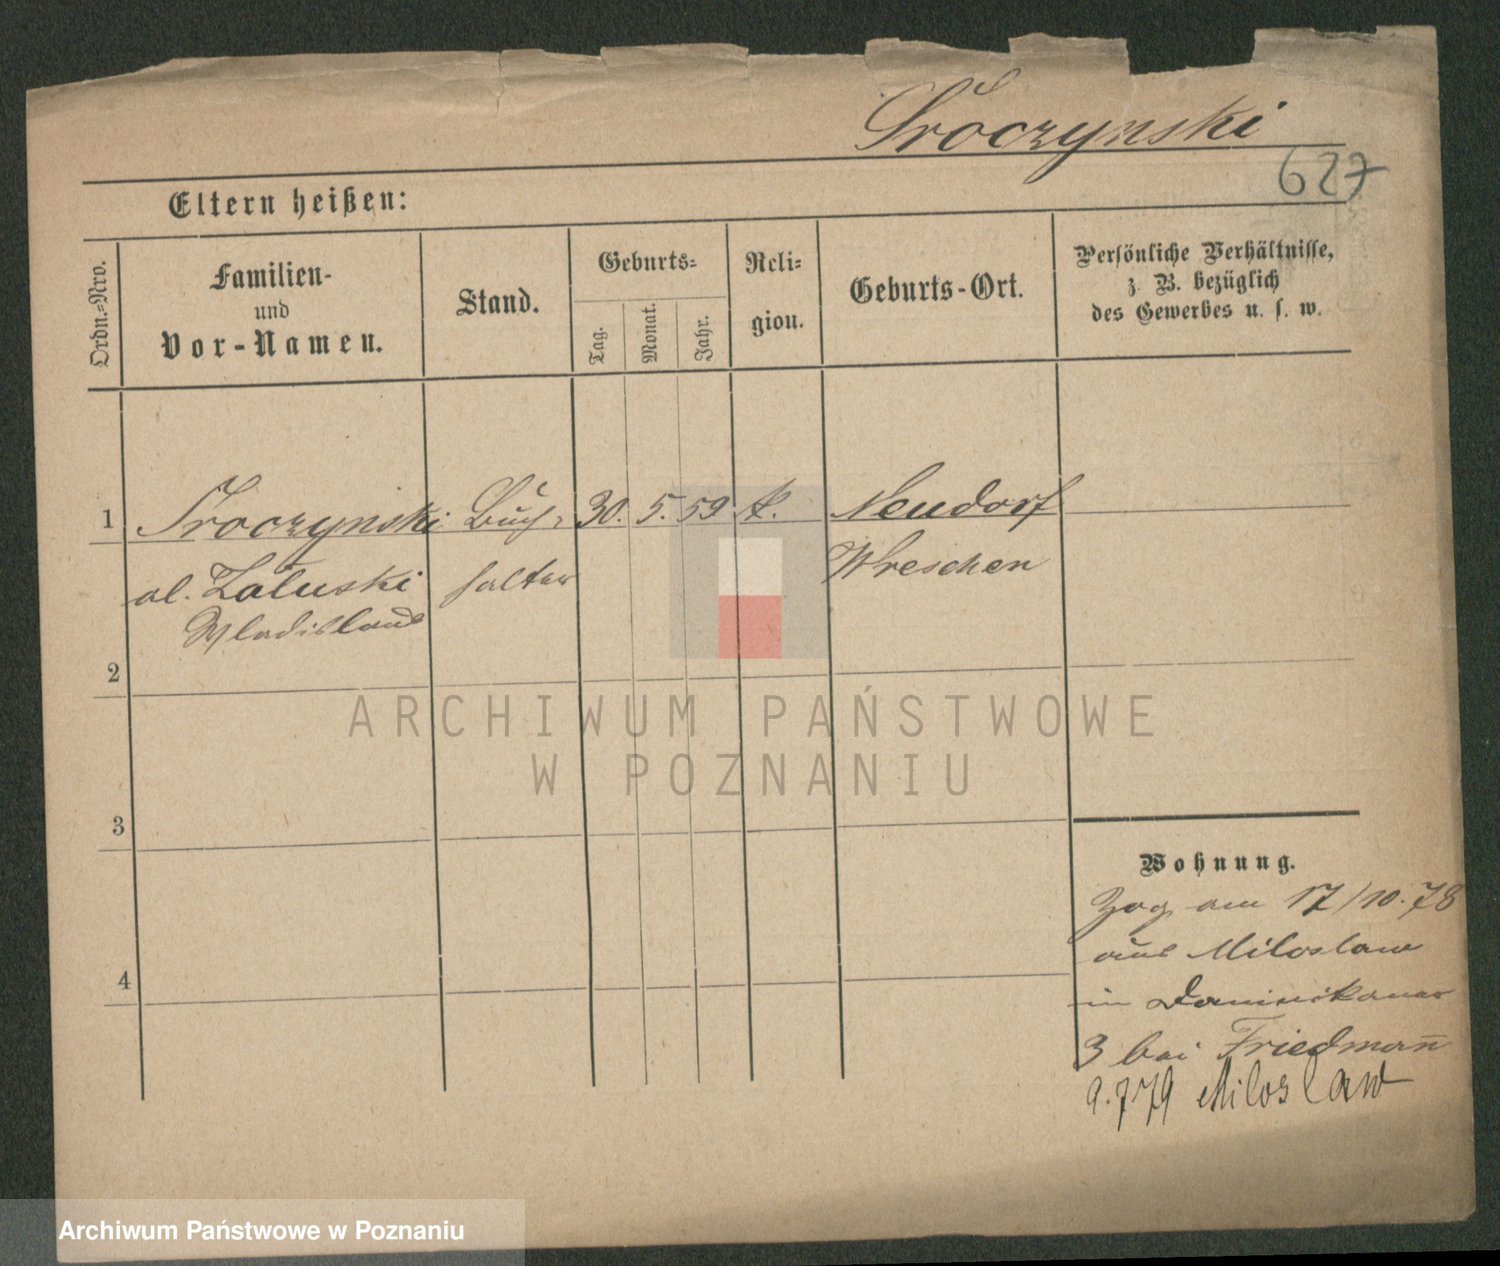 Sroczynski
627
Eltern heißen:
Ordn.-Nro.
Familien-
und
Vor-Namen.
Stand.
Geburts-
Tag.
Monat.
Jahr.
Reli-
gion.
Geburts-Ort.
Persönliche Verhältnisse,
z. B. bezüglich
des Gewerbes u. s. w.
1 Sroczynski Buch- 30. 5. 59 k. Neudorf
al. Zaluski halter Wreschen
Wladislaus
2
3
4
Wohnung.
Zog am 17/10.78
aus Miloslaw
in Dominikaner
3 bei Friedman̅
9.7 79 Miloslaw
ARCHIWUM PAŃSTWOWE
W POZNANIU
Archiwum Państwowe w Poznaniu